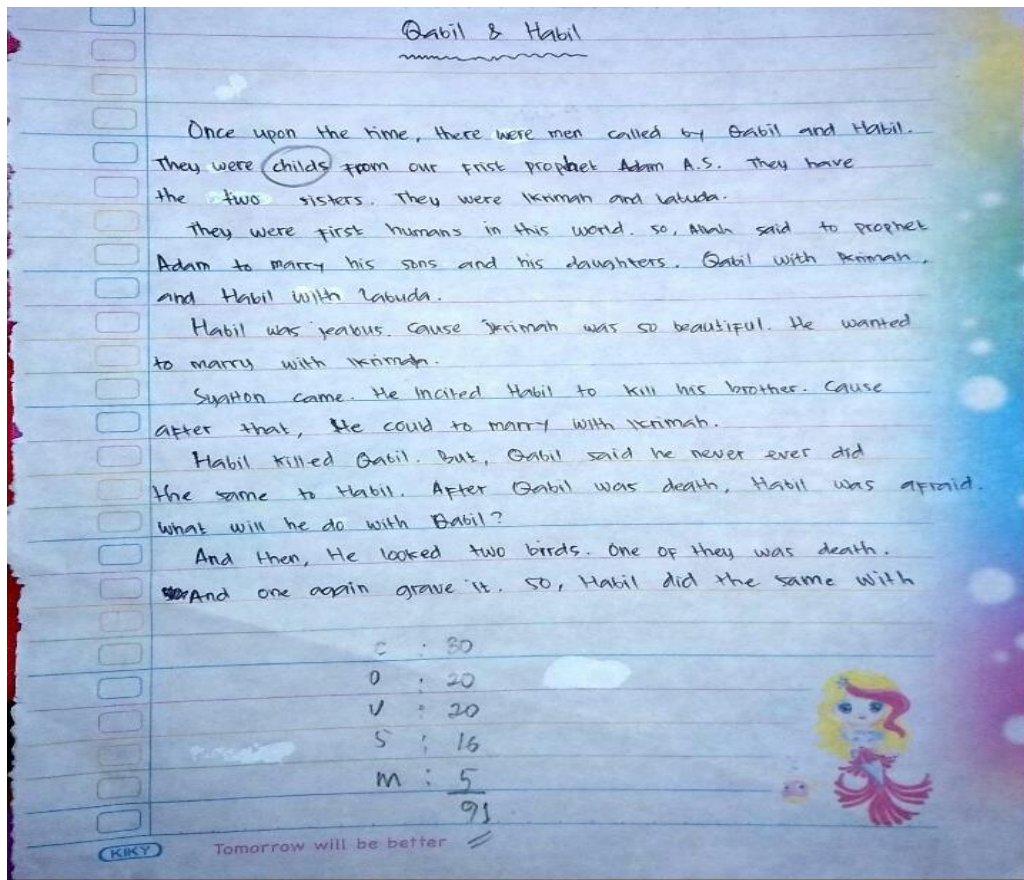 Qabil & Habil
Once upon the time, there were men called by Qabil and Habil.
They were childs from our frist prophet Adam A.S. They have
the two sisters. They were Ikrimah and Labuda.
They were first humans in this world. So, Allah said to prophet
Adam to marry his sons and his daughters. Qabil with Ikrimah,
and Habil with Labuda.
Habil was jealous. Cause Ikrimah was so beautiful. He wanted
to marry with Ikrimah.
Syaiton came. He incited Habil to kill his brother. Cause
after that, He could to marry with Ikrimah.
Habil killed Qabil. But, Qabil said he never ever did
the same to Habil. After Qabil was death, Habil was afraid.
What will he do with Qabil?
And then, He looked two birds. One of they was death.
And one again grave it. So, Habil did the same with
C : 30
O : 20
V : 20
S : 16
M : 5
91
KIKY
Tomorrow will be better